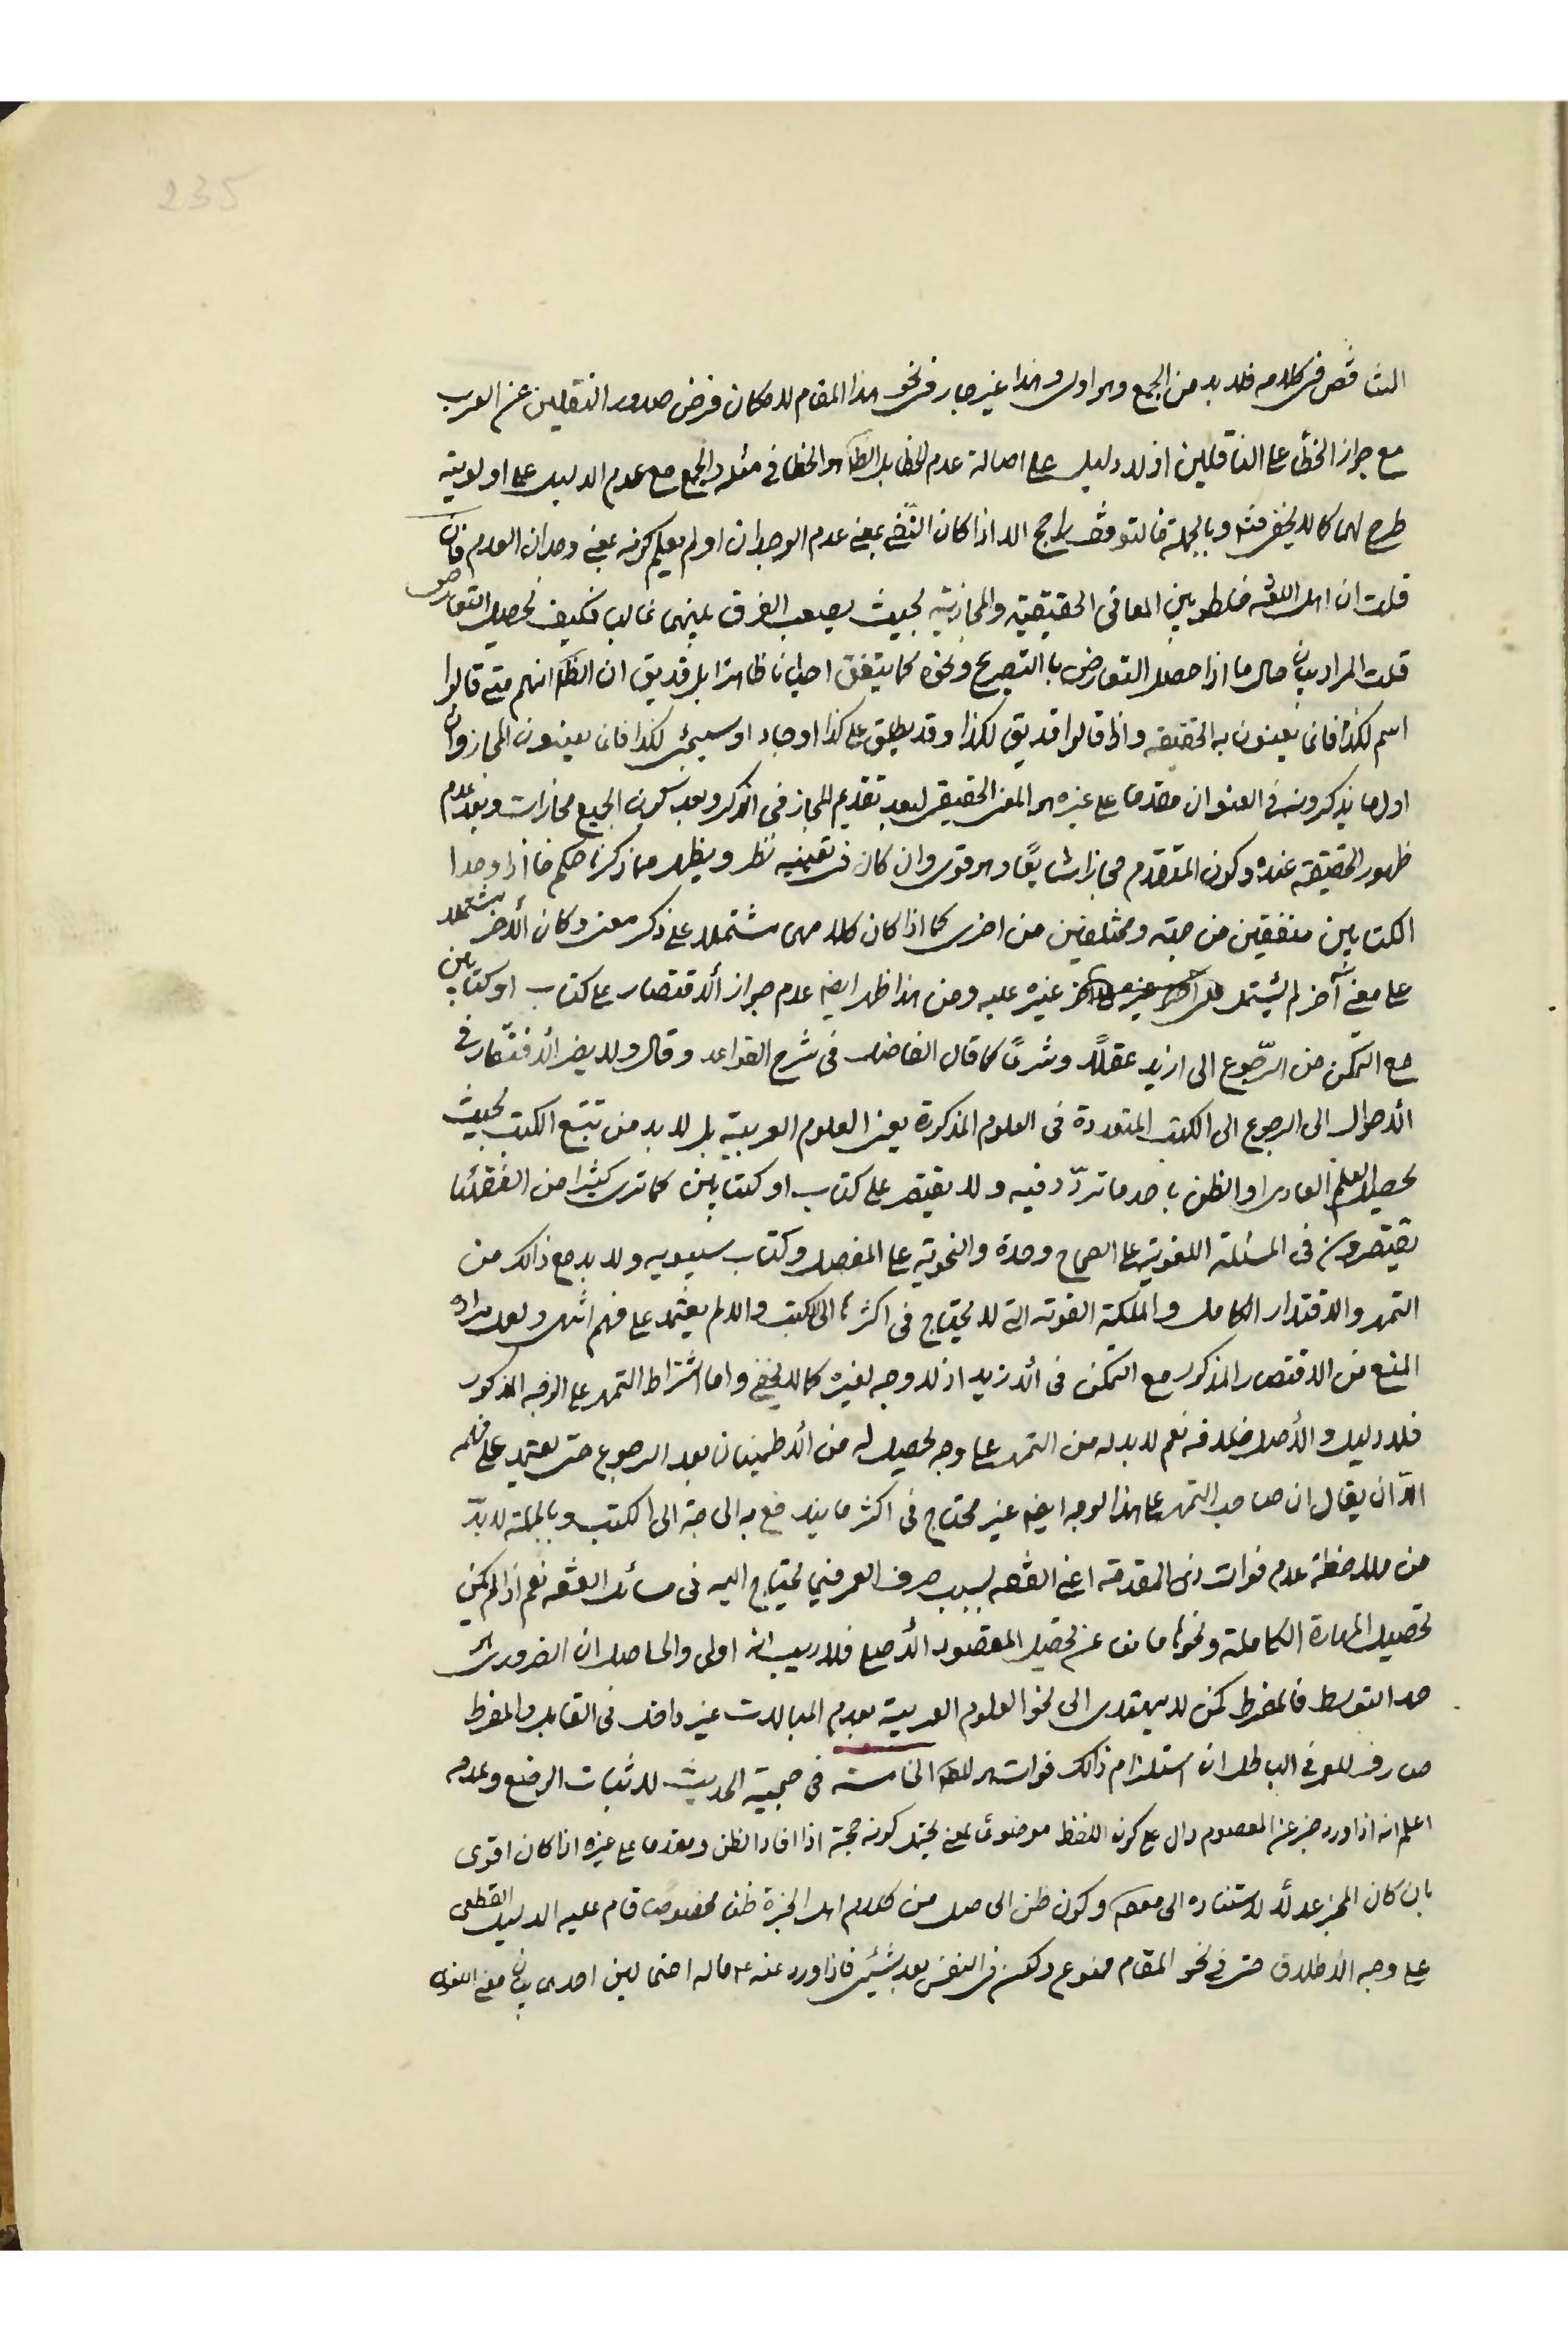 235
التناقض في كلامه فلا بد من الجمع وهو اولى وهذا غير جار في نحو هذا المقام لامكان فرض صدور النقلين عن العرب
مع جواز الخطأ على الناقلين اذ لا دليل على اصالة عدم الخطا بل الظاهر الخطا في مثله والجمع مع عدم الدليل على اولويته
طرح لهما كما لا يخفى وبالجملة فالتوقف راجح الا اذا كان النفي بمعنى عدم الوجدان او لم يعلم كونه بمعنى وجدان العدم فان
قلت ان اهل اللغة خلطو بين المعاني الحقيقية والمجازية بحيث يصعب الفرق بينهما غالبا فكيف يحصل التعارض
قلت المراد بيان حال ما اذا حصل التعارض با التصريح ونحوه كما يتفق احيانا ظاهرا بل قد يق ان الظ انهم متى قالوا
اسم لكذا فانما يعنون به الحقيقه واذا قالوا قد يق لكذا وقد يطلق على كذا او جاء او سيجئ لكذا فانما يعنون المجاز وان
اول ما يذكرونه في العنوان مقدما على غيره هو المعنى الحقيقي لبعد تقديم المجاز في الذكر وبعد كون الجميع مجازات وبعد عدم
ظهور الحقيقة عنده وكون المتقدم مجازا شايعًا وهو قوى وان كان في تعينيه نظر ويظهر مما ذكرنا حكم ما اذا وجدا
الكتابين متفقين من جهة ومختلفين من اخرى كما اذا كان كلا مهما مشتملا على ذكر معنى وكان الأخر مشتملا
على معنى آخر لم يشتمل غيره عليه ومن هذا ظهر ايضا عدم جواز ألاقتصار على كتاب او كتابين
مع التمكن من الرّجوع الى ازيد عقلًا وشرعًا كما قال الفاضل في شرح القواعد وقال ولا يضر ألافتقار في
ألاحوال الى الرجوع الى الكتب المتعددة في العلوم المذكورة يعنى العلوم العربية بل لا بد من تتبع الكتب بحيث
يحصل العلم العادى او الظن باحد ما تردّد فيه ولا يقتصر على كتاب او كتابين كما ترى كثيرا من الفقهائنا
يقتصرون في المسئلة اللغوية على الصحاح وحده والنحوية على المفصل وكتاب سيبويه ولا بد مع ذالك من
التمهر والاقتدار الكامل والملكة القوته التي لا يحتاج في اكثرها الى الكتب والا لم يعتمد على فهم انتهى ولعل مراده
المنع من الاقتصار المذكور مع التمكن في ألازيد اذ لا وجه لغيره كما لا يخفى واما اشتراط التمهر على الوجه المذكور
فلا دليل والأصل خلافه نعم لا بد له من التمهر على وجه يحصل له من ألاطمينان بعد الرجوع حتى يعتمد على فهمه
الّا ان يقال ان صاحب التمهر على هذا الوجه ايضا غير محتاج في اكثر ما يندفع به الحاجة الى الكتب وبالجملة لا بدّ
من ملاحظة عدم فوات ذى المقدمة اعنى الفقه بسبب صرف العمر فيما يحتاج اليه في مسائل الفقه نعم اذا لم يكن
تحصيل المهارة الكاملة ونحوها مانعا عن تحصيل المقصود الأصلى فلا ريب انه اولى والحاصل ان الضرورى هو
حد التوسط فالمفرط كمن لا يهتدى الى نحو العلوم العربية بعدم المبالات غير داخل في القابل والمفرط
صارف للعمر في الباطل ان استلزام ذالك فوات المطلب الخامسة في حجية الحديث لاثبات الوضع وعدمه
اعلم انه اذا ورد خبر عن المعصوم دال على كون اللفظ موضوعًا لمعنى يحتمل كونه حجة اذا افاد الظن ومقدما على غيره اذا كان اقوى
بان كان المخبر عدلًا لاستناده الى معصوم وكون ظن الحاصل من كلام اهل الخبرة ظنا مخصوصا قام عليه الدليل القطعى
على وجه الأطلاق حتى في نحو المقام ممنوع ولكن في النفس بعد شيئ فاذا ورد عنه ع ما له احتمالين احدهما بيان معنى اللغوى